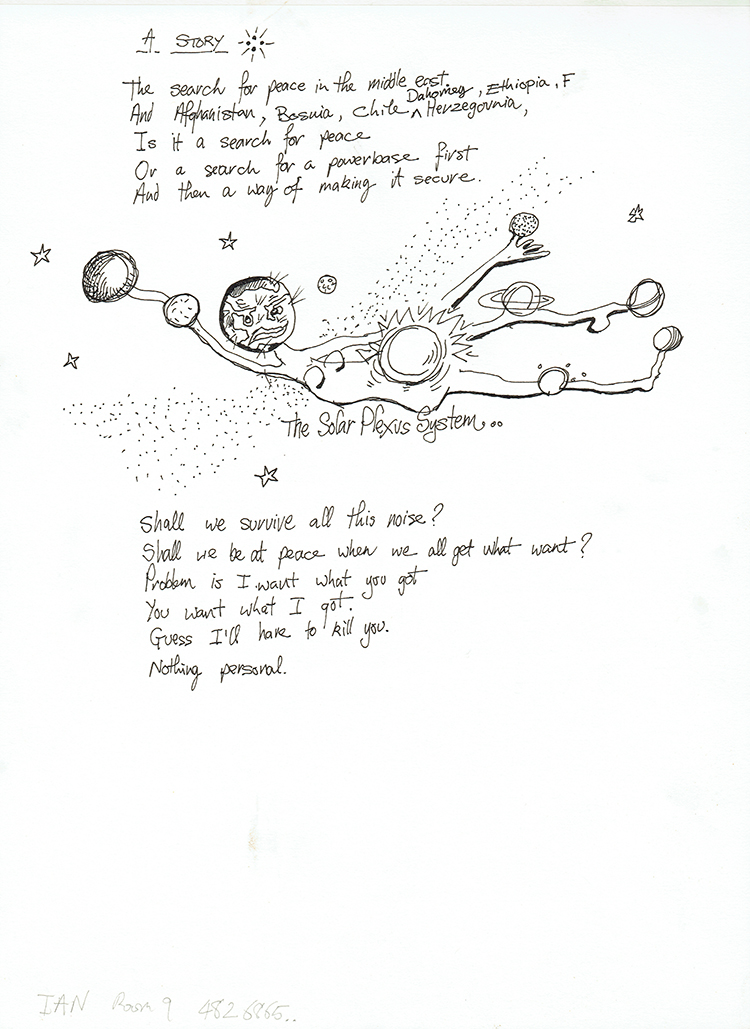 A STORY
The search for peace in the middle east.
Dahomey, Ethiopia, F
And Afghanistan, Bosnia, Chile ^ Herzegovnia,
Is it a search for peace
Or a search for a powerbase first
And then a way of making it secure.
The Solar Plexus System...
Shall we survive all this noise?
Shall we be at peace when we all get what want?
Problem is I want what you got
You want what I got.
Guess I'll have to kill you.
Nothing personal.
IAN Room 9